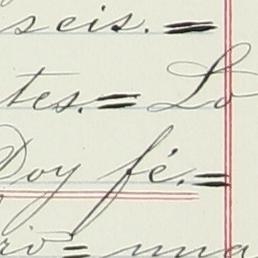 seis.=
tes.= Lo
Doy fé.=
rio= una